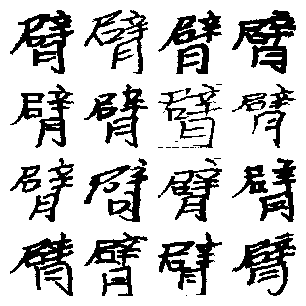 臂臂臂臂
臂臂臂臂
臂臂臂臂
臂臂臂臂